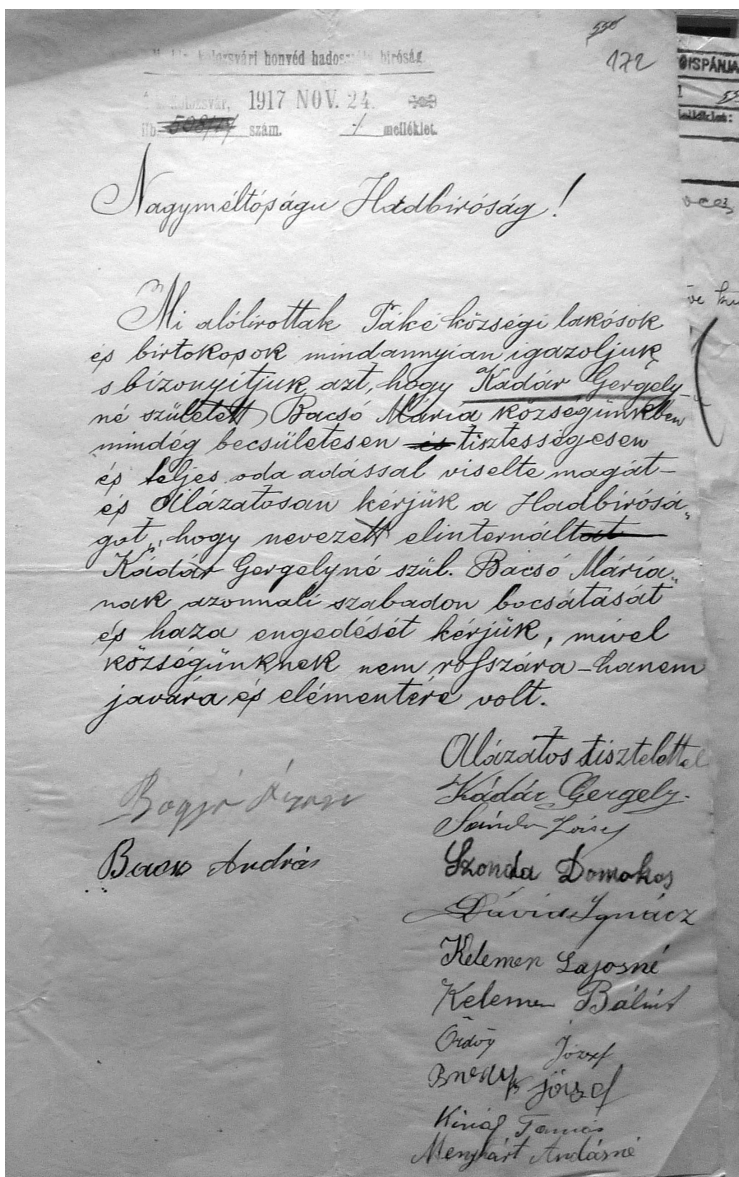 550
172
kolozsvári honvéd hadosztály bíróság.
Kolozsvár, 1917 NOV. 24.
Hb 508/17 szám. 1 melléklet.
ŐISPÁNJA
Nagyméltóságu Hadbíróság!
Mi alólirottak Páké községi lakósok
és birtokosok mindannyian igazoljuk
s bizonyitjuk azt, hogy Kádár Gergely-
né született Bacsó Mária községünkben
mindeg becsületesen és tisztességesen
és teljes oda adással viselte magát-
és Alázatosan kérjük a Hadbírósá„
got„ hogy nevezett elinternáltat
Kádár Gergelyné szül. Bacsó Mária„
nak azonnali szabadon bocsátását
és haza engedését kérjük, mivel
községünknek nem rosszára-hanem
javára és elémentére volt.
Alázatos tisztelettel
Kádár Gergely.
Bacsó András
Szonda Domokos
Dávid Ignácz
Kelemen Lajosné
Kelemen Bálint
Ördög József
József
Király Tamás
Menyhárt Andásné